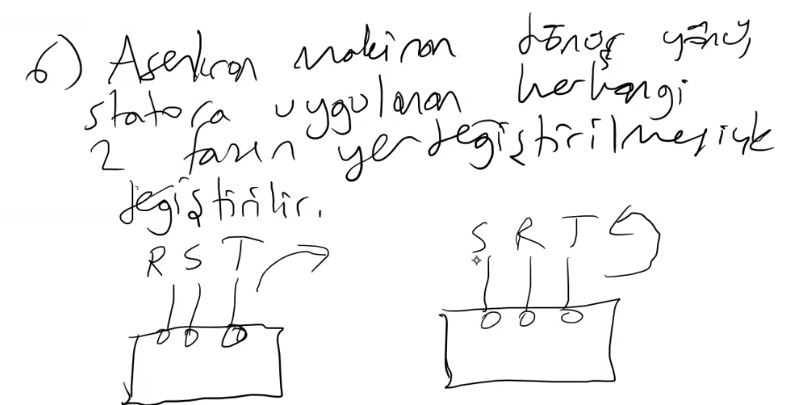 6) Asenkron makinan dönüş yönü,
statora uygulanan herhangi
2 fazın yer değiştirilmesiyle
değiştirilir.
R S T
S R T